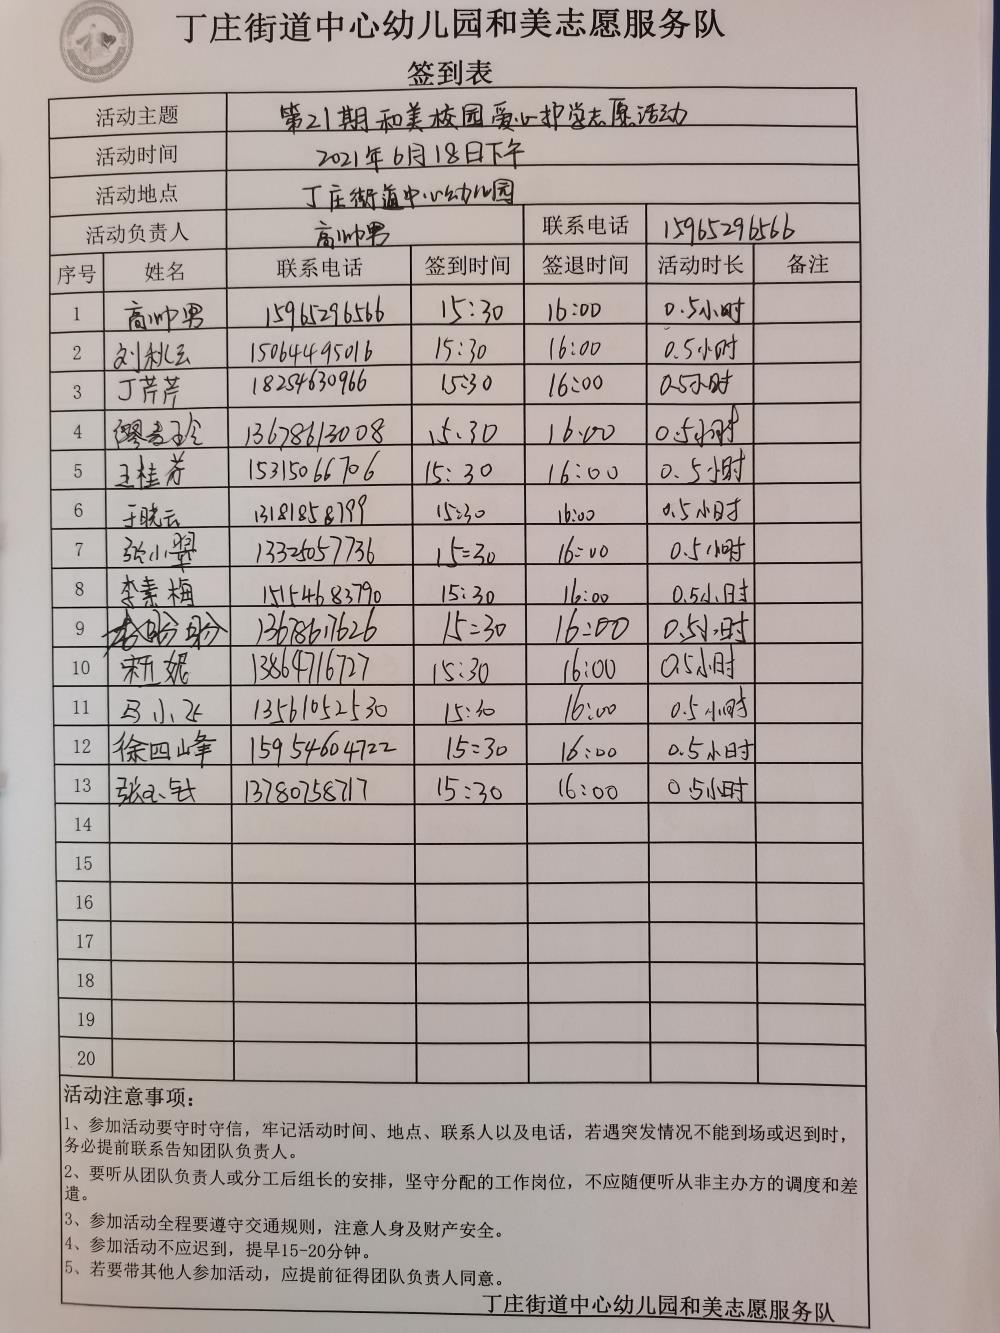 丁庄街道中心幼儿园和美志愿服务队
签到表
活动主题 第21期和美校园爱心护学志愿活动
活动时间 2021年6月18日下午
活动地点 丁庄街道中心幼儿园
活动负责人 高帅男 联系电话 15965296566
序号 姓名 联系电话 签到时间 签退时间 活动时长 备注
1 高帅男 15965296566 15:30 16:00 0.5小时
2 刘秋云 15064495016 15:30 16:00 0.5小时
3 丁芹芹 18254630966 15:30 16:00 0.5小时
4 13678613008 15:30 16:00 0.5小时
5 王桂芳 15315066706 15:30 16:00 0.5小时
6 于晓云 13181858799 15:30 16:00 0.5小时
7 张小翠 13325057736 15:30 16:00 0.5小时
8 李素梅 15154683790 15:30 16:00 0.5小时
9 盼盼 13678617626 15:30 16:00 0.5小时
10 妮 13864716727 15:30 16:00 0.5小时
11 马小飞 13561052530 15:30 16:00 0.5小时
12 徐四峰 15954604722 15:30 16:00 0.5小时
13 张 13780758717 15:30 16:00 0.5小时
14
15
16
17
18
19
20
活动注意事项：
1、参加活动要守时守信，牢记活动时间、地点、联系人以及电话，若遇突发情况不能到场或迟到时，
务必提前联系告知团队负责人。
2、要听从团队负责人或分工后组长的安排，坚守分配的工作岗位，不应随便听从非主办方的调度和差
遣。
3、参加活动全程要遵守交通规则，注意人身及财产安全。
4、参加活动不应迟到，提早15-20分钟。
5、若要带其他人参加活动，应提前征得团队负责人同意。
丁庄街道中心幼儿园和美志愿服务队